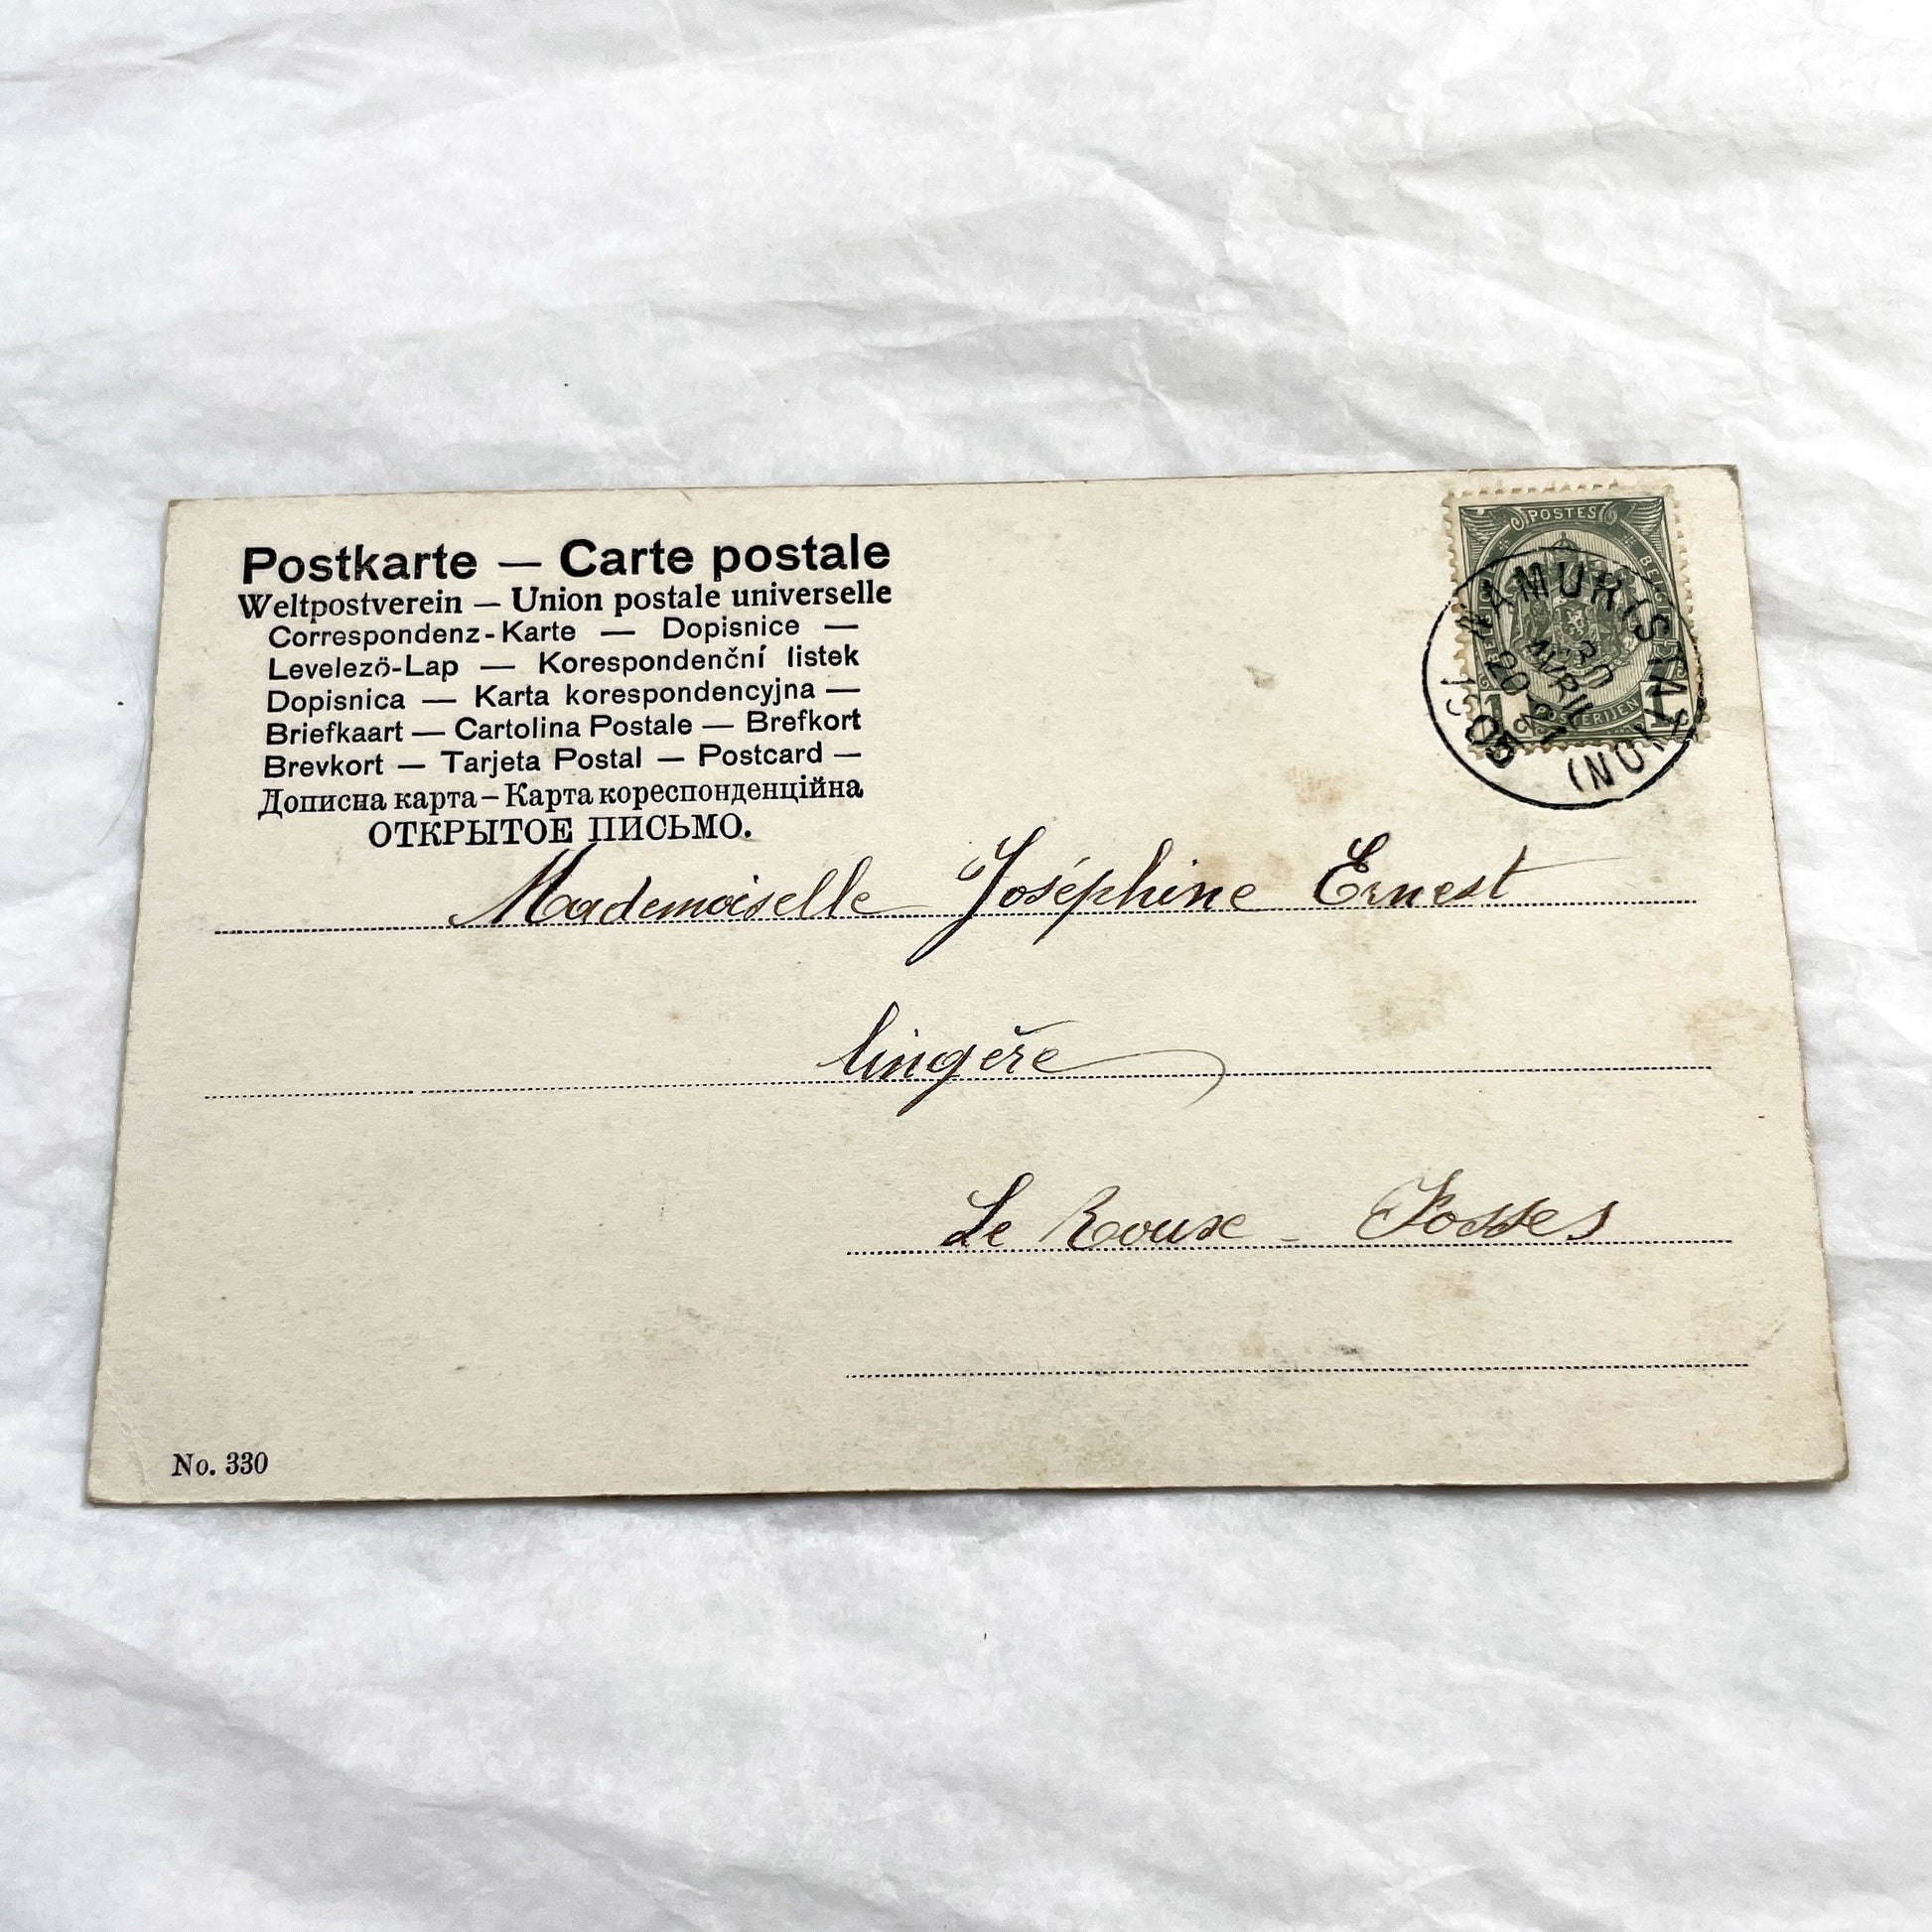 Postkarte — Carte postale
Weltpostverein — Union postale universelle
Correspondenz-Karte — Dopisnice —
Levelező-Lap — Korespondenční listek
Dopisnica — Karta korespondencyjna —
Briefkaart — Cartolina Postale — Brefkort
Brevkort — Tarjeta Postal — Postcard —
Дописна карта – Карта кореспонденційна
ОТКРЫТОЕ ПИСЬМО.
POSTES
POSTERIJEN
1 1
NAMUR (STATION)
30
AVRIL
20-21
Mademoiselle Joséphine Ernest
lingère
Le Roux - Fosses
No. 330